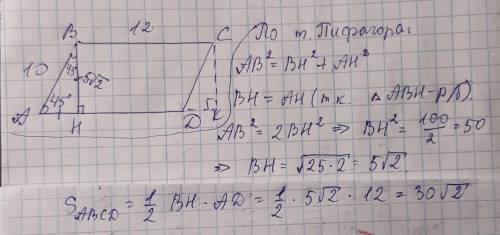 B 12 C
10 45° 5√2
A 45° H D K
По т. Пифагора:
AB² = BH² + AH²
BH = AH (т.к. △ ABH - р/б)
AB² = 2BH² ⇒ BH² = 100/2 = 50
⇒ BH = √25·2 = 5√2.
S_ABCD = 1/2 BH · AD = 1/2 · 5√2 · 12 = 30√2